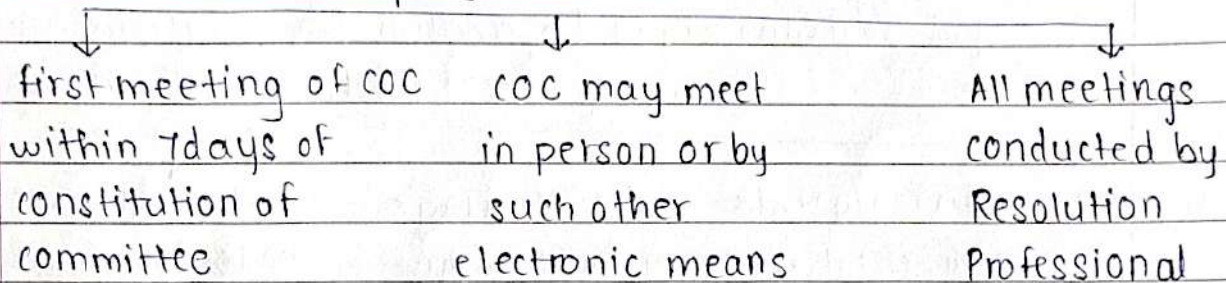 first meeting of COC
within 7days of
constitution of
committee
COC may meet
in person or by
such other
electronic means
All meetings
conducted by
Resolution
Professional